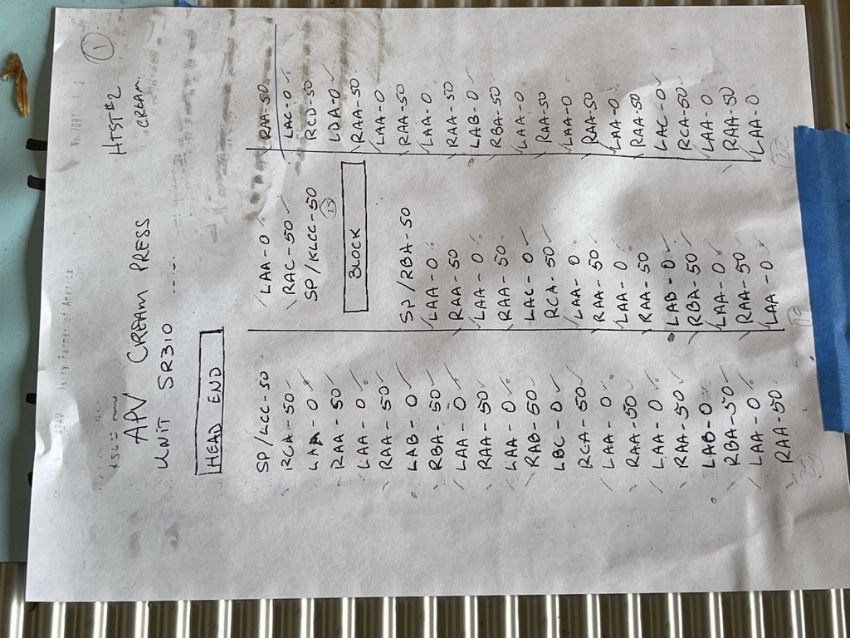 1
HTST#2
CREAM
APV CREAM PRESS
UNIT SR310
HEAD END
SP/LCC-50
RCA-50
LAA-0
RAA-50
LAA-0
RAA-50
LAB-0
RBA-50
LAA-0
RAA-50
LAA-0
RAB-50
LBC-0
RCA-50
LAA-0
RAA-50
LAA-0
RAA-50
LAB-0
RBA-50
LAA-0
RAA-50
LAA-0
RAC-50
SP/KLCC-50
23
BLOCK
SP/RBA-50
LAA-0
RAA-50
LAA-0
RAA-50
LAC-0
RCA-50
LAA-0
RAA-50
LAA-0
RAA-50
LAB-0
RBA-50
LAA-0
RAA-50
LAA-0
19
RAA-50
LAC-0
RCD-50
LDA-0
RAA-50
LAA-0
RAA-50
LAA-0
RAA-50
LAB-0
RBA-50
LAA-0
RAA-50
LAA-0
RAA-50
LAA-0
RAA-50
LAC-0
RCA-50
LAA-0
RAA-50
LAA-0
22